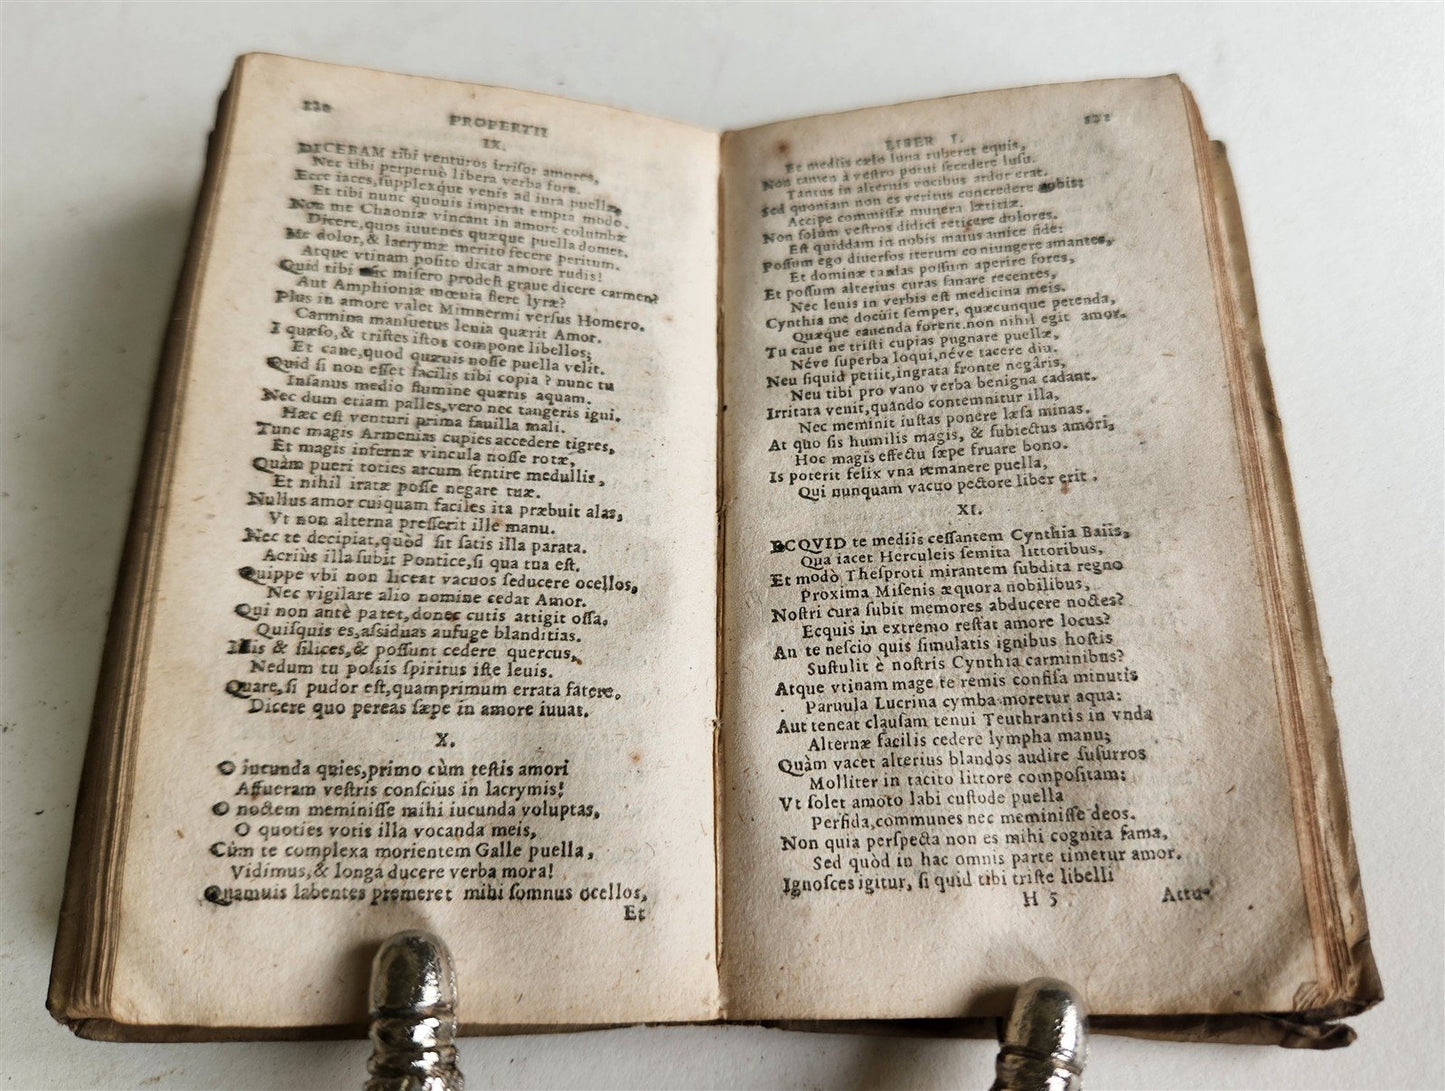 120
PROPERTII
IX.
DICEBAM tibi venturos irrisor amores,
Nec tibi perpetuò libera verba fore.
Ecce iaces, supplexque venis ad iura puellæ,
Et tibi nunc quouis imperat empta modo.
Non me Chaoniæ vincant in amore columbæ
Dicere, quos iuuenes quæque puella domet.
Me dolor, & lacrymæ merito fecere peritum.
Atque vtinam posito dicar amore rudis!
Quid tibi nec misero prodest graue dicere carmen?
Aut Amphioniæ mœnia flere lyræ?
Plus in amore valet Mimnermi versus Homero.
Carmina mansuetus lenia quærit Amor.
I quæso, & tristes istos compone libellos;
Et cane, quod quæuis nosse puella velit.
Quid si non esset facilis tibi copia? nunc tu
Insanus medio flumine quæris aquam.
Nec dum etiam palles, vero nec tangeris igni.
Hæc est venturi prima fauilla mali.
Tunc magis Armenias cupies accedere tigres,
Et magis infernæ vincula nosse rotæ,
Quàm pueri toties arcum sentire medullis,
Et nihil iratæ posse negare tuæ.
Nullus amor cuiquam faciles ita præbuit alas,
Vt non alterna presserit ille manu.
Nec te decipiat, quòd sit satis illa parata.
Acriùs illa subit Pontice, si qua tua est.
Quippe vbi non liceat vacuos seducere ocellos,
Nec vigilare alio nomine cedat Amor.
Qui non antè patet, donec cutis attigit ossa,
Quisquis es, assiduas aufuge blanditias.
Illis & silices, & possunt cedere quercus,
Nedum tu possis spiritus iste leuis.
Quare, si pudor est, quamprimum errata fatere,
Dicere quo pereas sæpe in amore iuuat.
X.
O iucunda quies, primo cùm testis amori
Affueram vestris conscius in lacrymis!
O noctem meminisse mihi iucunda voluptas,
O quoties votis illa vocanda meis,
Cùm te complexa morientem Galle puella,
Vidimus, & longa ducere verba mora!
Quamuis labentes premeret mihi somnus ocellos,
Et
LIBER I. 121
Et mediis cælo luna ruberet equis,
Non tamen à vestro potui secedere lusu.
Tantus in alternis vocibus ardor erat.
Sed quoniam non es veritus concredere nobis:
Accipe commissæ munera lætitiæ.
Non solùm vestros didici reticere dolores.
Est quiddam in nobis maius amice fide:
Possum ego diuersos iterum coniungere amantes,
Et dominæ tardas possum aperire fores,
Et possum alterius curas sanare recentes,
Nec leuis in verbis est medicina meis.
Cynthia me docuit semper, quæcunque petenda,
Quæque cauenda forent. non nihil egit amor.
Tu caue ne tristi cupias pugnare puellæ,
Néve superba loqui, néve tacere diu.
Neu siquid petiit, ingrata fronte negâris,
Neu tibi pro vano verba benigna cadant.
Irritata venit, quando contemnitur illa,
Nec meminit iustas ponere læsa minas.
At quo sis humilis magis, & subiectus amori,
Hoc magis effectu sæpe fruare bono.
Is poterit felix vna remanere puella,
Qui nunquam vacuo pectore liber erit.
XI.
ECQVID te mediis cessantem Cynthia Baiis,
Qua iacet Herculeis semita littoribus,
Et modò Thesproti mirantem subdita regno
Proxima Misenis æquora nobilibus,
Nostri cura subit memores abducere noctes?
Ecquis in extremo restat amore locus?
An te nescio quis simulatis ignibus hostis
Sustulit è nostris Cynthia carminibus?
Atque vtinam mage te remis confisa minutis
Paruula Lucrina cymba moretur aqua:
Aut teneat clausam tenui Teuthrantis in vnda
Alternæ facilis cedere lympha manu;
Quàm vacet alterius blandos audire susurros
Molliter in tacito littore compositam:
Vt solet amoto labi custode puella
Perfida, communes nec meminisse deos.
Non quia perspecta non es mihi cognita fama,
Sed quòd in hac omnis parte timetur amor.
Ignosces igitur, si quid tibi triste libelli
H 5 Attu-